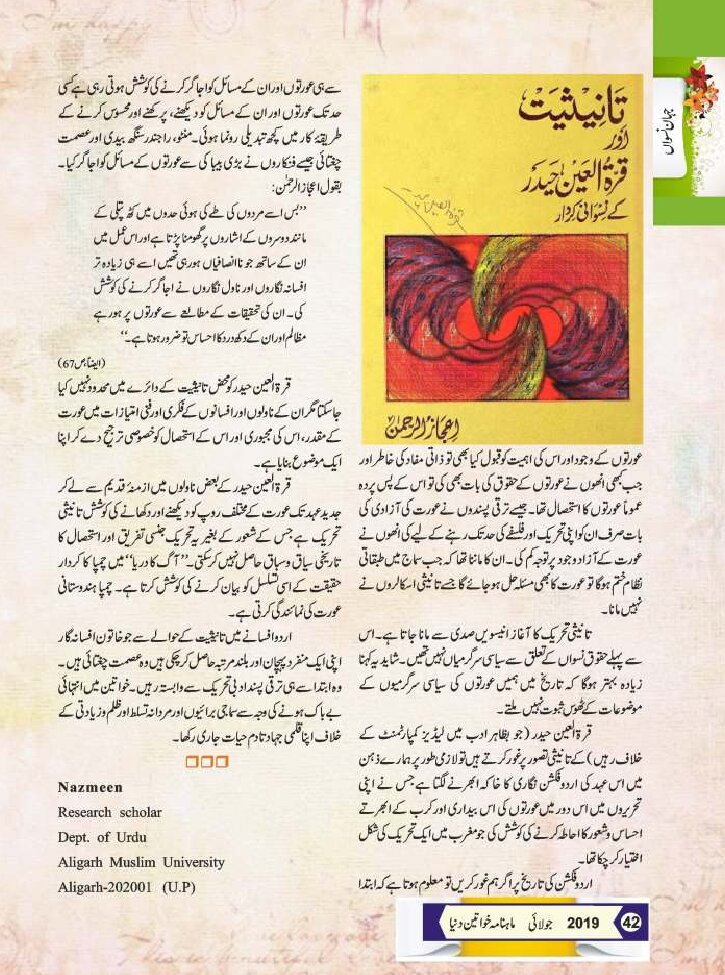 جہانِ نسواں
تانیثیت
اور
قرۃ العین حیدر
کے نسوانی کردار
اعجاز الرحمن
عورتوں کے وجود اور اس کی اہمیت کو قبول کیا بھی تو ذاتی مفاد کی خاطر اور
جب بھی انھوں نے عورتوں کے حقوق کی بات بھی کی تو اس کے پس پردہ
عموماً عورتوں کا استحصال تھا۔ جیسے ترقی پسندوں نے عورت کی آزادی کی
بات صرف ان کو اپنی تحریک اور فلسفے کی حد تک رہنے کے لیے کی انھوں نے
عورت کے آزاد وجود پر توجہ کم کی۔ ان کا ماننا تھا کہ جب سماج میں طبقاتی
نظام ختم ہوگا تو عورت کا بھی مسئلہ حل ہو جائے گا جسے تانیثی اسکالروں نے
نہیں مانا۔
تانیثی تحریک کا آغاز انیسویں صدی سے مانا جاتا ہے۔ اس
سے پہلے حقوق نسواں کے تعلق سے سیاسی سرگرمیاں نہیں تھیں۔ شاید یہ کہنا
زیادہ بہتر ہوگا کہ تاریخ میں ہمیں عورتوں کی سیاسی سرگرمیوں کے
موضوعات کے ٹھوس ثبوت نہیں ملتے۔
قرۃ العین حیدر (جو بظاہر ادب میں لیڈیز کمپارٹمنٹ کے
خلاف رہیں) کے تانیثی تصور پر غور کرتے ہیں تو لازمی طور پر ہمارے ذہن
میں اس عہد کی اردو فکشن نگاری کا خاکہ ابھرنے لگتا ہے جس نے اپنی
تحریروں میں اس دور میں عورتوں کی اس بیداری اور کرب کے ابھرتے
احساس و شعور کا احاطہ کرنے کی کوشش کی جو مغرب میں ایک تحریک کی شکل
اختیار کر چکا تھا۔
اردو فکشن کی تاریخ پر اگر ہم غور کریں تو معلوم ہوتا ہے کہ ابتدا
سے ہی عورتوں اور ان کے مسائل کو اجاگر کرنے کی کوشش ہوتی رہی ہے کسی
حد تک عورتوں اور ان کے مسائل کو دیکھنے، پرکھنے اور محسوس کرنے کے
طریقۂ کار میں کچھ تبدیلی رونما ہوئی۔ منٹو، راجندر سنگھ بیدی اور عصمت
چغتائی جیسے فنکاروں نے بڑی بیباکی سے عورتوں کے مسائل کو اجاگر کیا۔
بقول اعجاز الرحمٰن:
’’بس اسے مردوں کی طے کی ہوئی حدوں میں کٹھ پتلی کے
مانند دوسروں کے اشاروں پر گھومنا پڑتا ہے اور اس عمل میں
ان کے ساتھ جو نا انصافیاں ہو رہی تھیں اسے ہی زیادہ تر
افسانہ نگاروں اور ناول نگاروں نے اجاگر کرنے کی کوشش
کی۔ ان کی تخلیقات کے مطالعے سے عورتوں پر ہو رہے
مظالم اور ان کے دکھ درد کا احساس تو ضرور ہوتا ہے۔‘‘
(ایضاً ص 67)
قرۃ العین حیدر کو محض تانیثیت کے دائرے میں محدود نہیں کیا
جاسکتا مگر ان کے ناولوں اور افسانوں کے فکری اور فنی امتیازات میں عورت
کے مقدر، اس کی مجبوری اور اس کے استحصال کو خصوصی ترجیح دے کر اپنا
ایک موضوع بنایا ہے۔
قرۃ العین حیدر کے بعض ناولوں میں ازمنۂ قدیم سے لے کر
جدید عہد تک عورت کے مختلف روپ کو دیکھنے اور دکھانے کی کوشش تانیثی
تحریک ہے جس کے شعور کے بغیر یہ تحریک جنسی تفریق اور استحصال کا
تاریخی سیاق و سباق حاصل نہیں کر سکتی۔ ’’آگ کا دریا‘‘ میں چمپا کا کردار
حقیقت کے اسی تسلسل کو بیان کرنے کی کوشش کرتا ہے۔ چمپا ہندوستانی
عورت کی نمائندگی کرتی ہے۔
اردو افسانے میں تانیثیت کے حوالے سے جو خاتون افسانہ نگار
اپنی ایک منفرد پہچان اور بلند مرتبہ حاصل کر چکی ہیں وہ عصمت چغتائی ہیں۔
وہ ابتدا سے ہی ترقی پسند ادبی تحریک سے وابستہ رہیں۔ خواتین میں انتہائی
بے باک ہونے کی وجہ سے سماجی برائیوں اور مردانہ تسلط اور ظلم و زیادتی کے
خلاف اپنا قلمی جہاد تادم حیات جاری رکھا۔
Nazmeen
Research scholar
Dept. of Urdu
Aligarh Muslim University
Aligarh-202001 (U.P)
ماہنامہ خواتین دنیا جولائی 2019 42